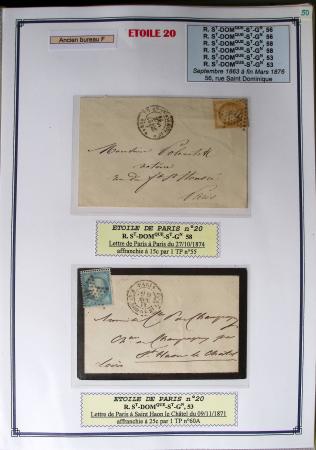 50
ETOILE 20
Ancien bureau F
R. Sᵀ-DOMQUE-Sᵀ-Gᴺ, 56
R. Sᵀ-DOMQUE-Sᵀ-Gᴺ, 56
R. Sᵀ-DOMQUE-Sᵀ-Gᴺ, 58
R. Sᵀ-DOMQUE-Sᵀ-Gᴺ, 58
R. Sᵀ-DOMQUE-Sᵀ-Gᴺ, 53
R. Sᵀ-DOMQUE-Sᵀ-Gᴺ, 53
Septembre 1863 à fin Mars 1876
56, rue Saint Dominique
Monsieur
notaire
Paris
ETOILE DE PARIS n°20
R. Sᵀ-DOMQUE-Sᵀ-Gᴺ 58
Lettre de Paris à Paris du 27/10/1874
affranchie à 15c par 1 TP n°55
PARIS
St Haon le Chatel
Loire
ETOILE DE PARIS n°20
R. Sᵀ-DOMQUE-Sᵀ-Gᴺ, 53
Lettre de Paris à Saint Haon le Châtel du 09/11/1871
affranchie à 25c par 1 TP n°60A